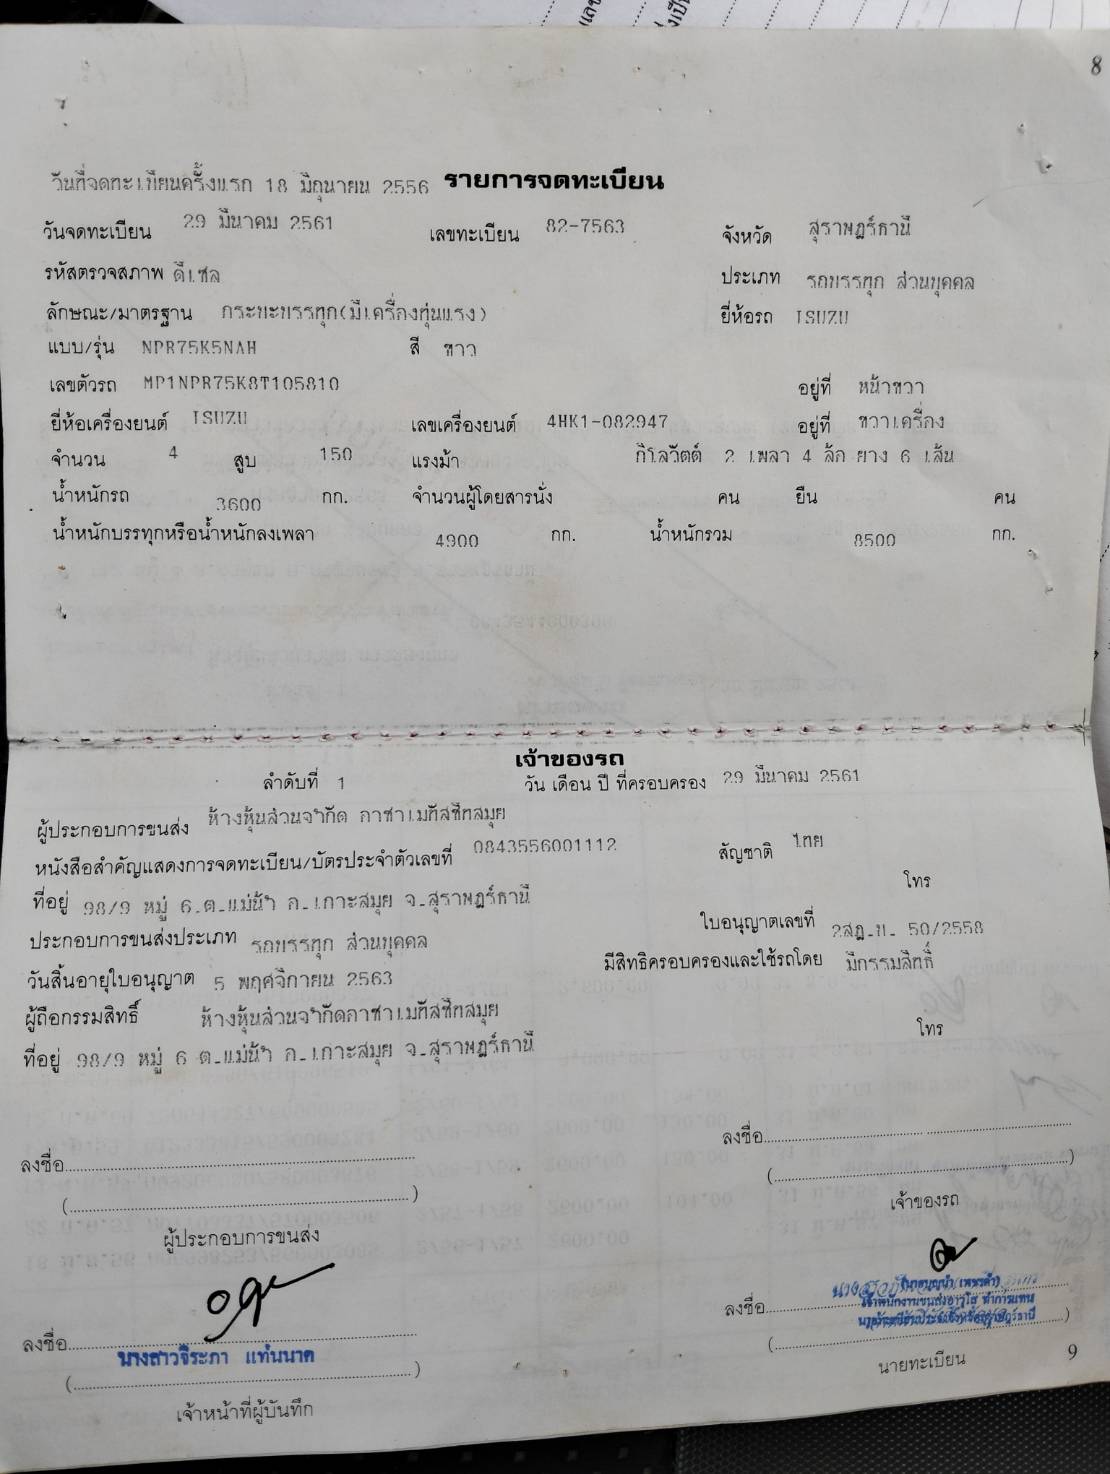 8
วันที่จดทะเบียนครั้งแรก 18 มิถุนายน 2556 รายการจดทะเบียน
วันจดทะเบียน 29 มีนาคม 2561 เลขทะเบียน 82-7563 จังหวัด สุราษฎร์ธานี
รหัสตรวจสภาพ ดีเซล ประเภท รถบรรทุก ส่วนบุคคล
ลักษณะ/มาตรฐาน กระบะบรรทุก(มีเครื่องทุ่นแรง) ยี่ห้อรถ ISUZU
แบบ/รุ่น NPR75K5NAH สี ขาว
เลขตัวรถ MP1NPR75K8T105810 อยู่ที่ หน้าขวา
ยี่ห้อเครื่องยนต์ ISUZU เลขเครื่องยนต์ 4HK1-082947 อยู่ที่ ขวาเครื่อง
จำนวน 4 สูบ 150 แรงม้า กิโลวัตต์ 2 เพลา 4 ล้อ ยาง 6 เส้น
น้ำหนักรถ 3600 กก. จำนวนผู้โดยสารนั่ง คน ยืน คน
น้ำหนักบรรทุกหรือน้ำหนักลงเพลา 4900 กก. น้ำหนักรวม 8500 กก.
เจ้าของรถ
ลำดับที่ 1 วัน เดือน ปี ที่ครอบครอง 29 มีนาคม 2561
ผู้ประกอบการขนส่ง ห้างหุ้นส่วนจำกัด ถาชาเมทัลชีทสมุย
หนังสือสำคัญแสดงการจดทะเบียน/บัตรประจำตัวเลขที่ 0843556001112 สัญชาติ ไทย
โทร
ที่อยู่ 98/9 หมู่ 6 ต.แม่น้ำ อ.เกาะสมุย จ.สุราษฎร์ธานี
ประกอบการขนส่งประเภท รถบรรทุก ส่วนบุคคล ใบอนุญาตเลขที่ 2สฎ.บ. 50/2558
วันสิ้นอายุใบอนุญาต 5 พฤศจิกายน 2563 มีสิทธิครอบครองและใช้รถโดย มีกรรมสิทธิ์
ผู้ถือกรรมสิทธิ์ ห้างหุ้นส่วนจำกัดถาชาเมทัลชีทสมุย
โทร
ที่อยู่ 98/9 หมู่ 6 ต.แม่น้ำ อ.เกาะสมุย จ.สุราษฎร์ธานี
ลงชื่อ ลงชื่อ
( ) ( )
ผู้ประกอบการขนส่ง เจ้าของรถ
ลงชื่อ ลงชื่อ
นางสาวจิระภา แท่นนาค
( ) ( )
เจ้าหน้าที่ผู้บันทึก นายทะเบียน
9